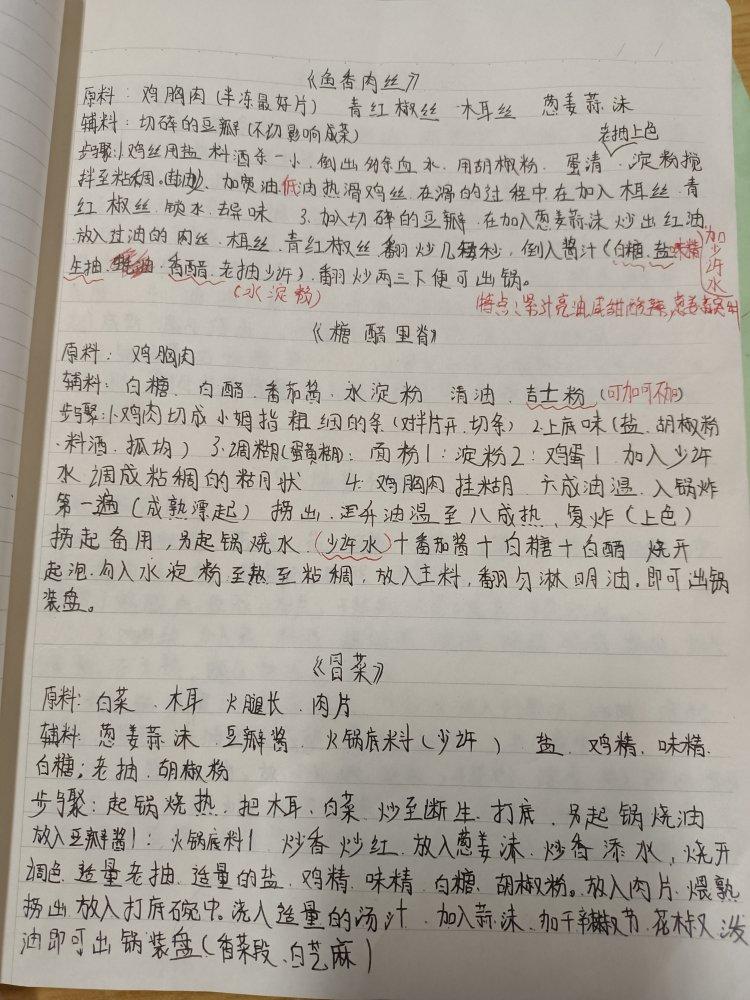 《鱼香肉丝》
原料：鸡胸肉（半冻最好片） 青红椒丝 木耳丝 葱姜蒜沫
辅料：切碎的豆瓣（不切影响成菜） 老抽上色
步骤：1.鸡丝用盐.料酒杀一小.倒出多余血水.用胡椒粉.蛋清.淀粉搅
拌至粘稠。（封油）、加宽油低油热滑鸡丝.在滑的过程中在加入木耳丝.青
红椒丝.锁水.去异味 3.加入切碎的豆瓣.在加入葱姜蒜沫炒出红油
放入过油的肉丝.木耳丝.青红椒丝翻炒几秒，倒入酱汁（白糖.盐味精 加少许水
生抽.香醋.老抽少许）.翻炒两三下便可出锅。
（水淀粉）
特点：果汁亮油.底甜酸辣，葱姜蒜
《糖醋里脊》
原料：鸡胸肉
辅料：白糖、白醋.番茄酱.水淀粉 清油.吉士粉（可加可不加）
步骤：1.鸡肉切成小姆指粗细的条（对半片开.切条） 2.上底味（盐.胡椒粉
.料酒.抓均） 3.调糊（蛋黄糊）：面粉1：淀粉2：鸡蛋1.加入少许
水.调成粘稠的粘月状 4.鸡胸肉挂糊.六成油温.入锅炸
第一遍（成熟漂起）捞出.回升油温至八成热.复炸（上色）
捞起备用，另起锅烧水.（少许水）+番茄酱+白糖+白醋 烧开
起泡.勾入水淀粉至熬至粘稠，放入主料，翻匀淋明油.即可出锅
装盘。
《冒菜》
原料：白菜.木耳 火腿长.肉片
辅料：葱姜蒜沫.豆瓣酱.火锅底料（少许） 盐.鸡精.味精.
白糖；老抽.胡椒粉
步骤：起锅烧热.把木耳.白菜.炒至断生.打底.另起锅烧油
放入豆瓣酱1：火锅底料1 炒香炒红.放入葱姜沫.炒香添水，烧开
调色.适量老抽.适量的盐.鸡精.味精.白糖.胡椒粉。放入肉片.煨熟
捞出放入打底碗中。浇入适量的汤汁.加入蒜沫.加干辣椒节.花椒.泼
油即可出锅装盘（香菜段.白芝麻）